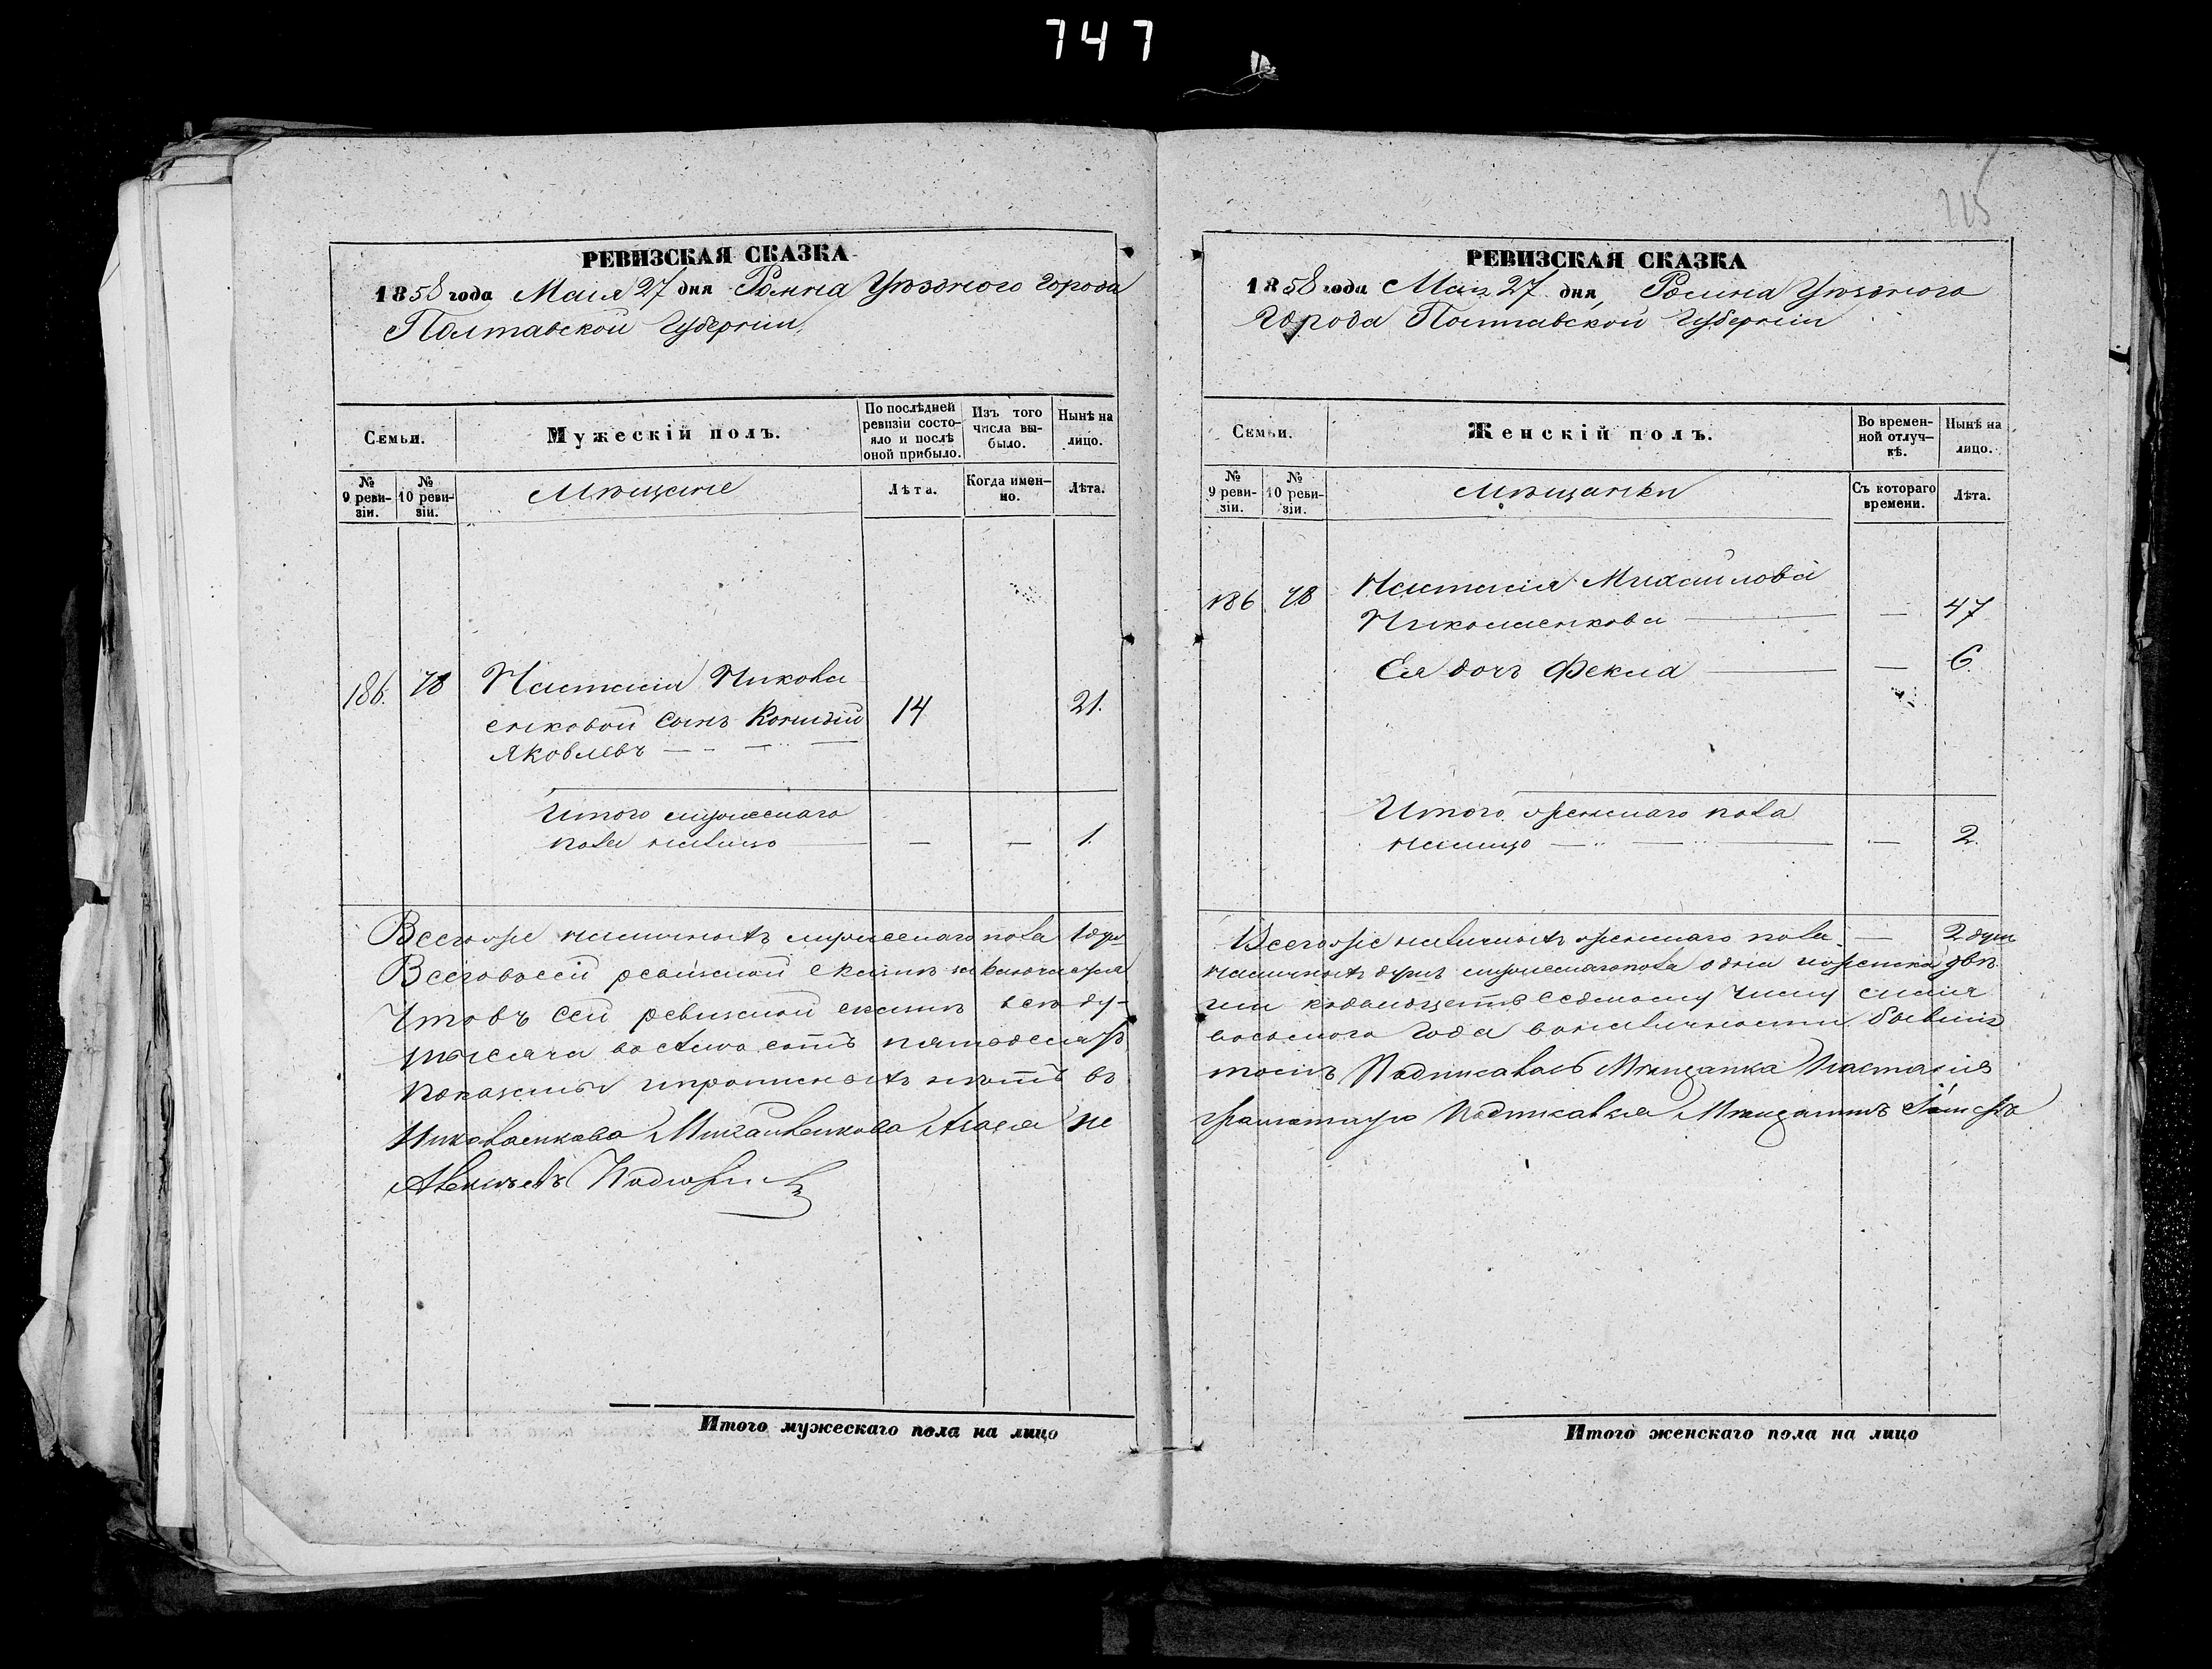 747
РЕВИЗСКАЯ СКАЗКА
1858 года Маія 27 дня Ромна Уѣзднаго города
Полтавской Губерніи
Семьи.
Мужескій полъ.
По послѣдней ревизіи состояло и послѣ оной прибыло.
Изъ того числа выбыло.
Нынѣ на лицо.
№ 9 ревизіи.
№ 10 ревизіи.
Мѣщане
Лѣта.
Когда именно.
Лѣта.
186. 78 Настасіи Никола
енковой сынъ 14 21.
Яковлевъ
Итого мужескаго
пола налицо — — 1.
Всегоже наличныхъ мужескаго пола 1 душ
Всего въ сей ревизской сказкѣ
Что въ сей ревизской сказкѣ всѣ ду-
тысяча восемь сотъ пятьдесятъ
показаны и прописныхъ нѣтъ въ
Николаенкова не
Итого мужескаго пола на лицо
215
РЕВИЗСКАЯ СКАЗКА
1858 года Маія 27 дня, Ромна Уѣзднаго
Города Полтавской Губерніи
Семьи.
Женскій полъ.
Во временной отлучкѣ.
Нынѣ на лицо.
№ 9 ревизіи.
№ 10 ревизіи.
Мѣщанки
Съ котораго времени.
Лѣта.
186 78 Настасія Михайлова
Николаенкова — 47
Ея дочь Фекла — 6.
Итого женскаго пола
налицо — 2.
Всегоже наличныхъ женскаго пола — 2 душ
наличныхъ душъ мужескаго пола одна и женска двѣ
седьмому числу
восьмого года
Мѣщанка Настасія
Мѣщанинъ
Итого женскаго пола на лицо